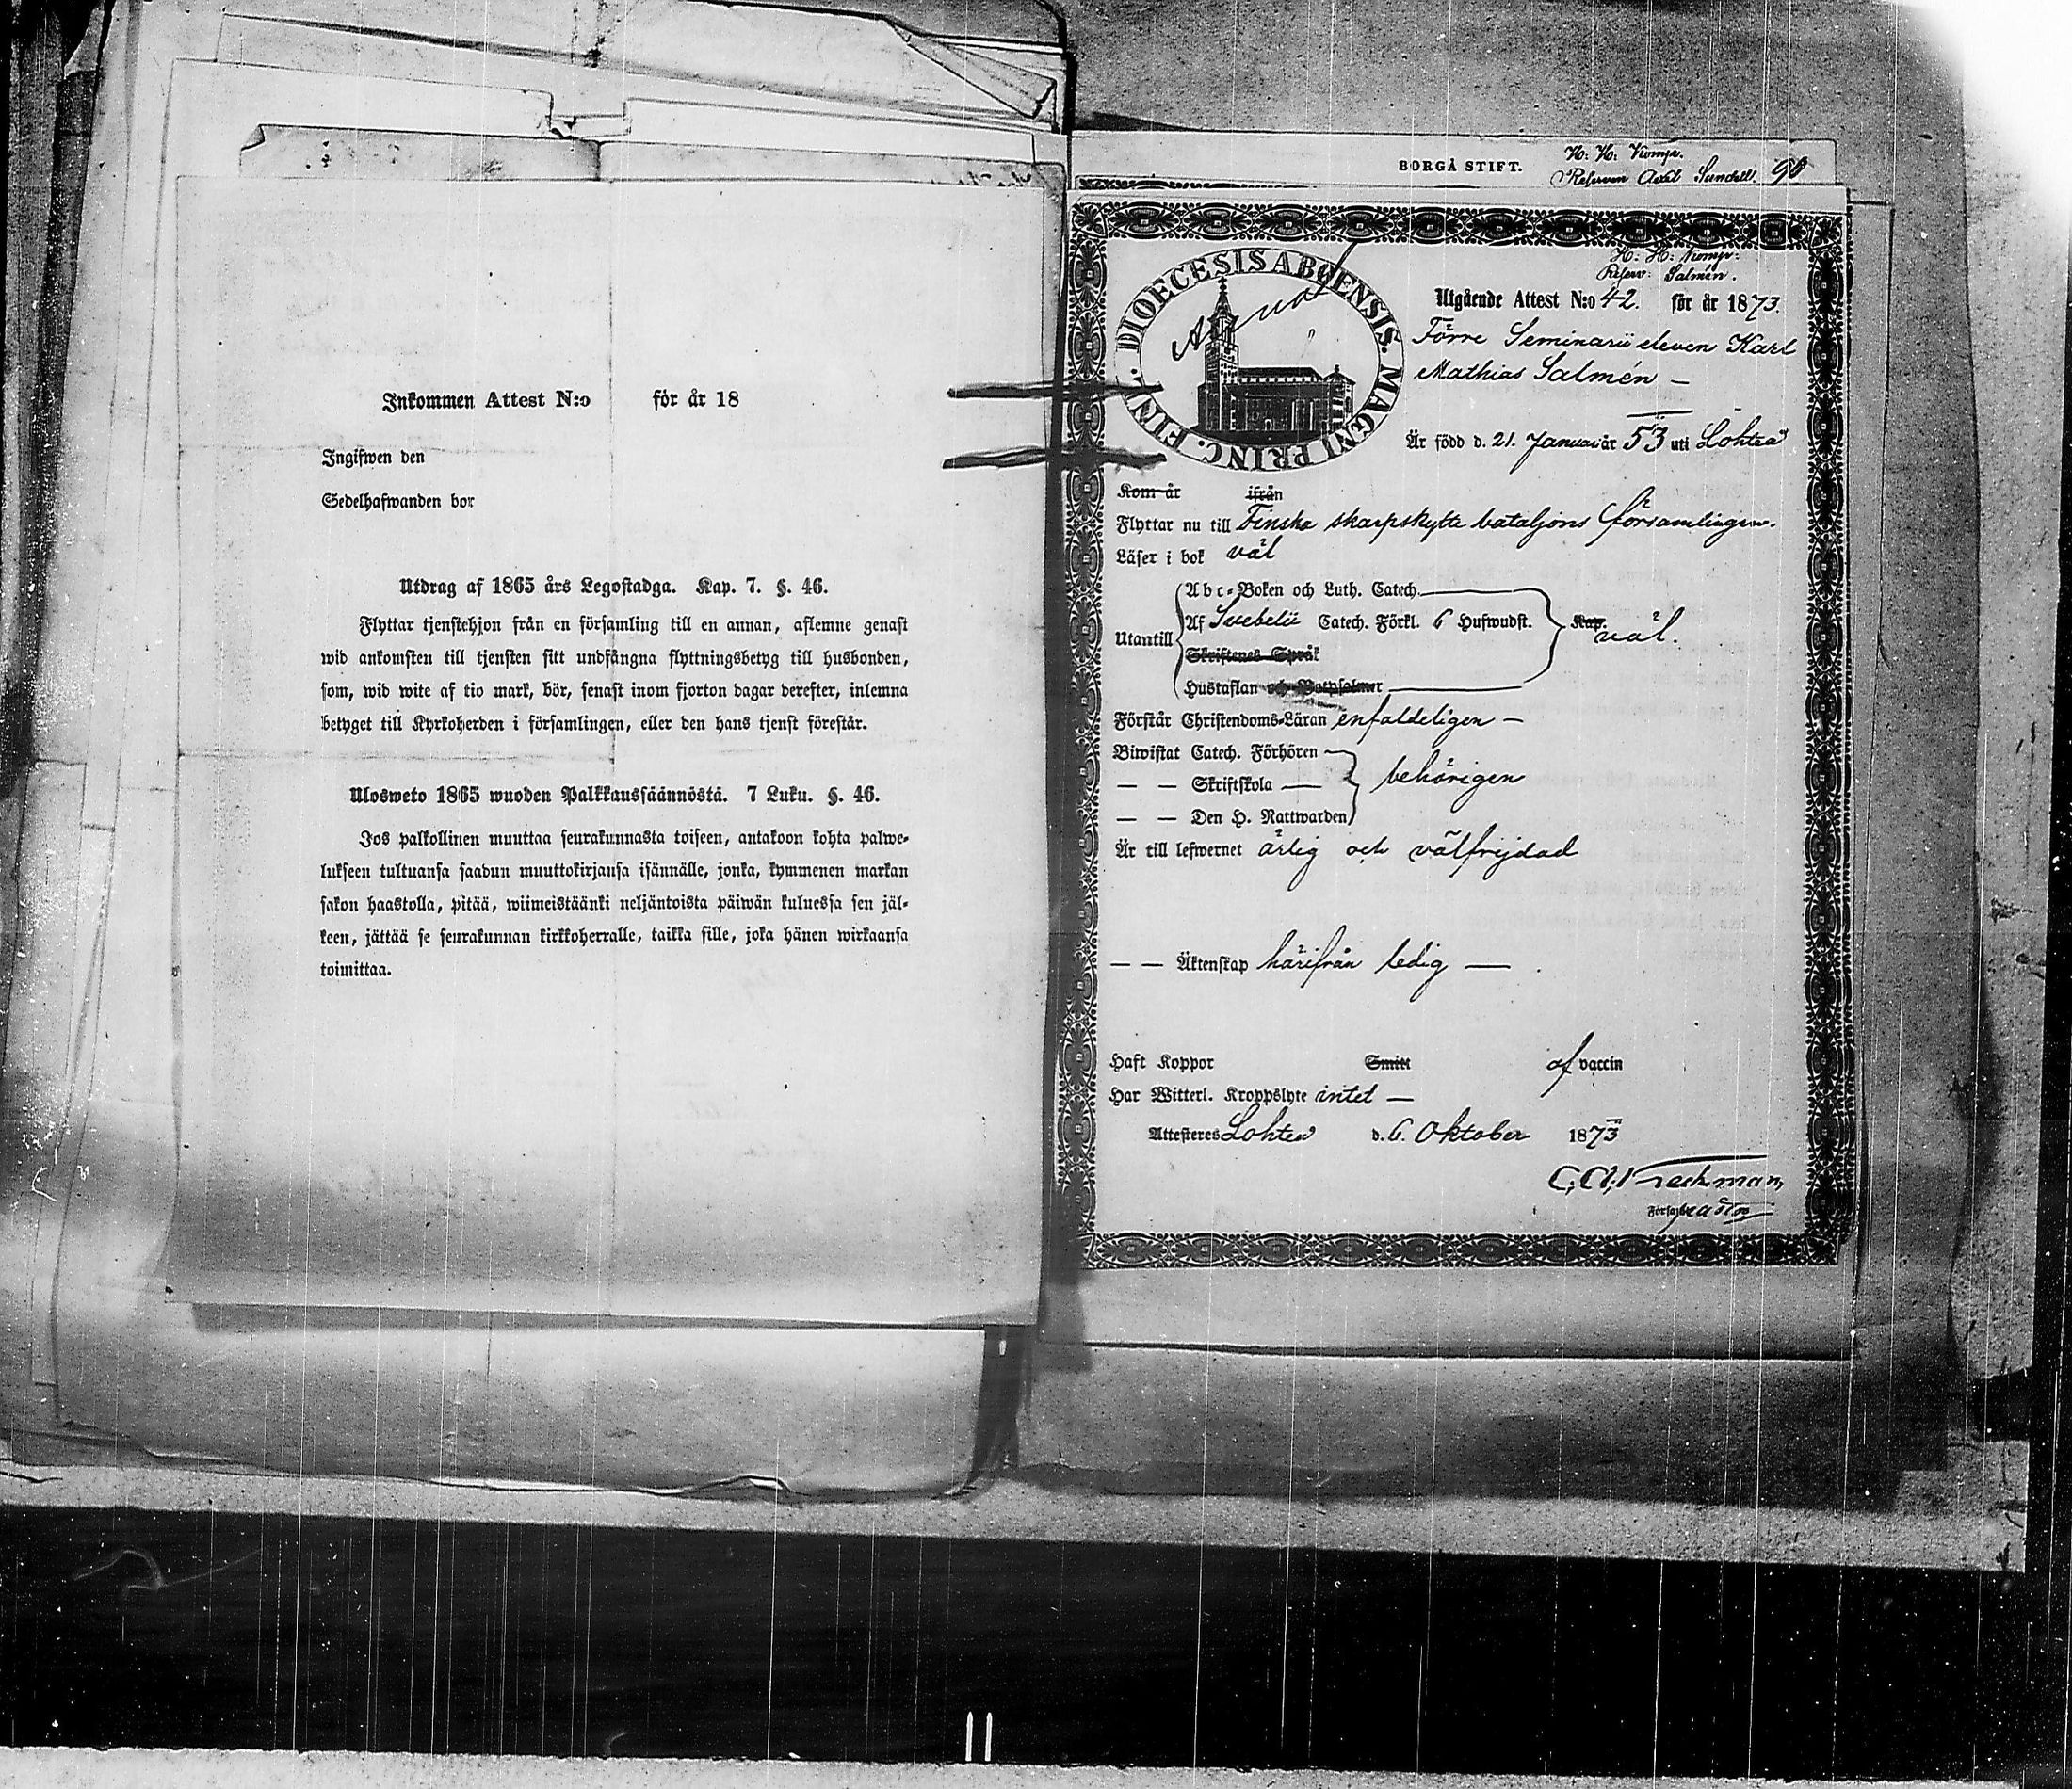 Inkommen Attest N:o för år 18
Ingifwen den
Sedelhafwanden bor
Utdrag af 1865 års Legostadga. Kap. 7. §. 46.
Flyttar tjenstehjon från en församling till en annan, aflemne genast
wid ankomsten till tjensten sitt undfångna flyttningsbetyg till husbonden,
som, wid wite af tio mark, bör, senast inom fjorton dagar derefter, inlemna
betyget till Kyrkoherden i församlingen, eller den hans tjenst förestår.
Ulosweto 1865 wuoden Palkkaussäännöstä. 7 Luku. §. 46.
Jos palkollinen muuttaa seurakunnasta toiseen, antakoon kohta palwe-
lukseen tultuansa saadun muuttokirjansa isännälle, jonka, kymmenen markan
sakon haastolla, pitää, wiimeistäänki neljäntoista päiwän kuluessa sen jäl-
keen, jättää se seurakunnan kirkkoherralle, taikka sille, joka hänen wirkaansa
toimittaa.
BORGÅ STIFT.
H: H: Komp.
Reserven Axel Sundell. 90
DIOECESIS ABOENSIS. MAGNI PRINC. FINL.
H: H: Komp:
Reserv: Salmén.
Utgående Attest N:o 42. för år 1873.
Förre Seminarii eleven Karl
Mathias Salmén —
Är född d. 21. Januari år 53 uti Lohteå
Kom år ifrån
Flyttar nu till Finska skarpskytte bataljons församlingen.
Läser i bok väl
Abc-Boken och Luth. Catech.
Utantill Af Svebelii Catech. Förkl. 6 Hufwudst. Kap. väl.
Skriftenes Språk
Hustaflan och Botpsalmer
Förstår Christendoms-Läran enfaldeligen —
Biwistat Catech. Förhören
— — Skriftskola — behörigen
— — Den H. Nattwarden
Är till lefwernet ärlig och välfrejdad
— — Äktenskap härifrån ledig —
Haft Koppor Smitt af vaccin
Har Witterl. Kroppslyte intet —
Attesteres Lohteå d. 6. Oktober 1873